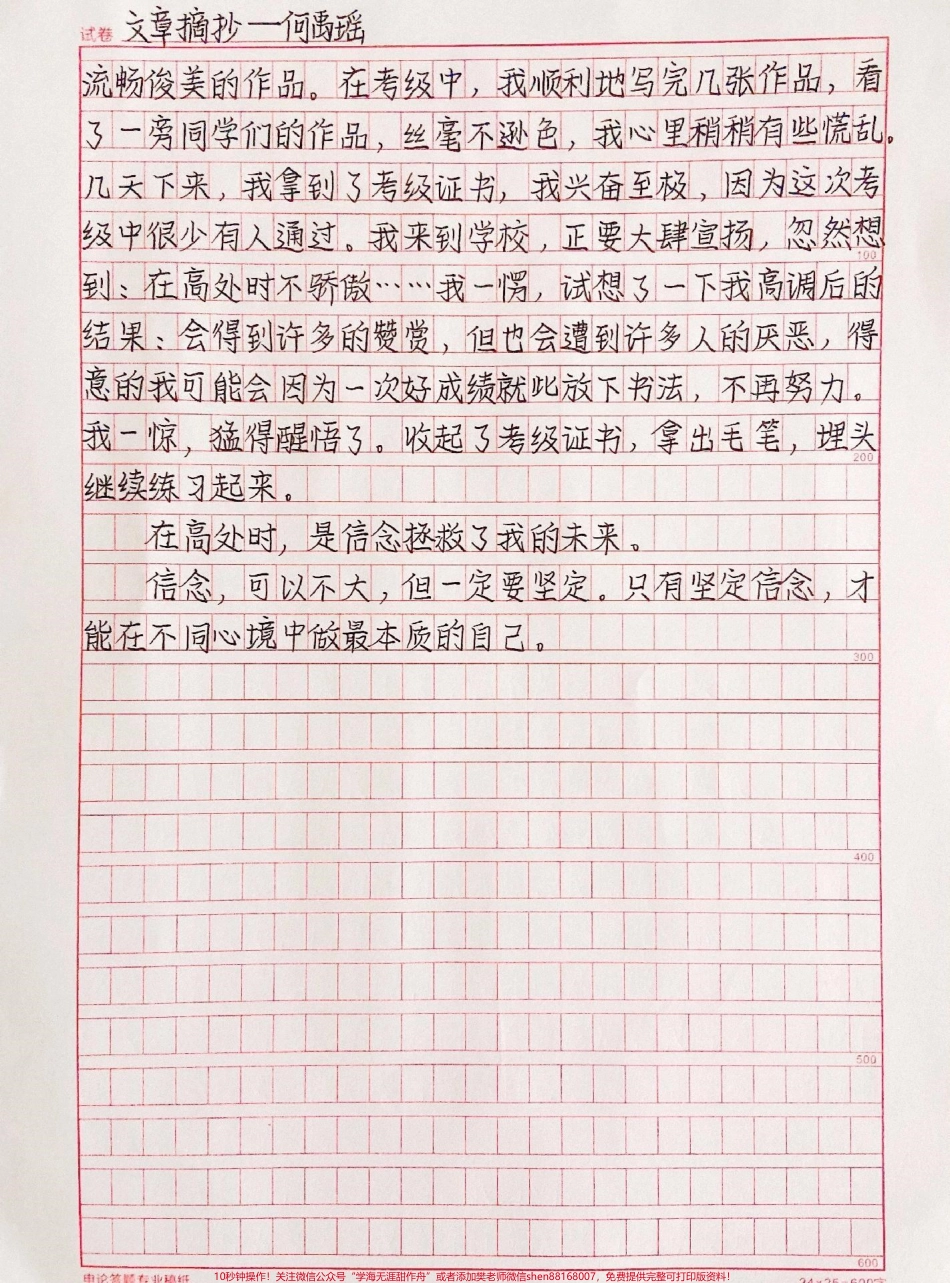 试卷 文章摘抄—何禹瑶
流畅俊美的作品。在考级中，我顺利地写完几张作品，看
了一旁同学们的作品，丝毫不逊色，我心里稍稍有些慌乱。
几天下来，我拿到了考级证书，我兴奋至极，因为这次考
级中很少有人通过。我来到学校，正要大肆宣扬，忽然想
100
到：在高处时不骄傲……我一愣，试想了一下我高调后的
结果：会得到许多的赞赏，但也会遭到许多人的厌恶，得
意的我可能会因为一次好成绩就此放下书法，不再努力。
我一惊，猛得醒悟了。收起了考级证书，拿出毛笔，埋头
200
继续练习起来。
在高处时，是信念拯救了我的未来。
信念，可以不大，但一定要坚定。只有坚定信念，才
能在不同心境中做最本质的自己。
300
400
500
600
申论答题专业稿纸 24×25=600字
10秒钟操作！关注微信公众号“学海无涯甜作舟”或者添加樊老师微信shen88168007，免费提供完整可打印版资料！